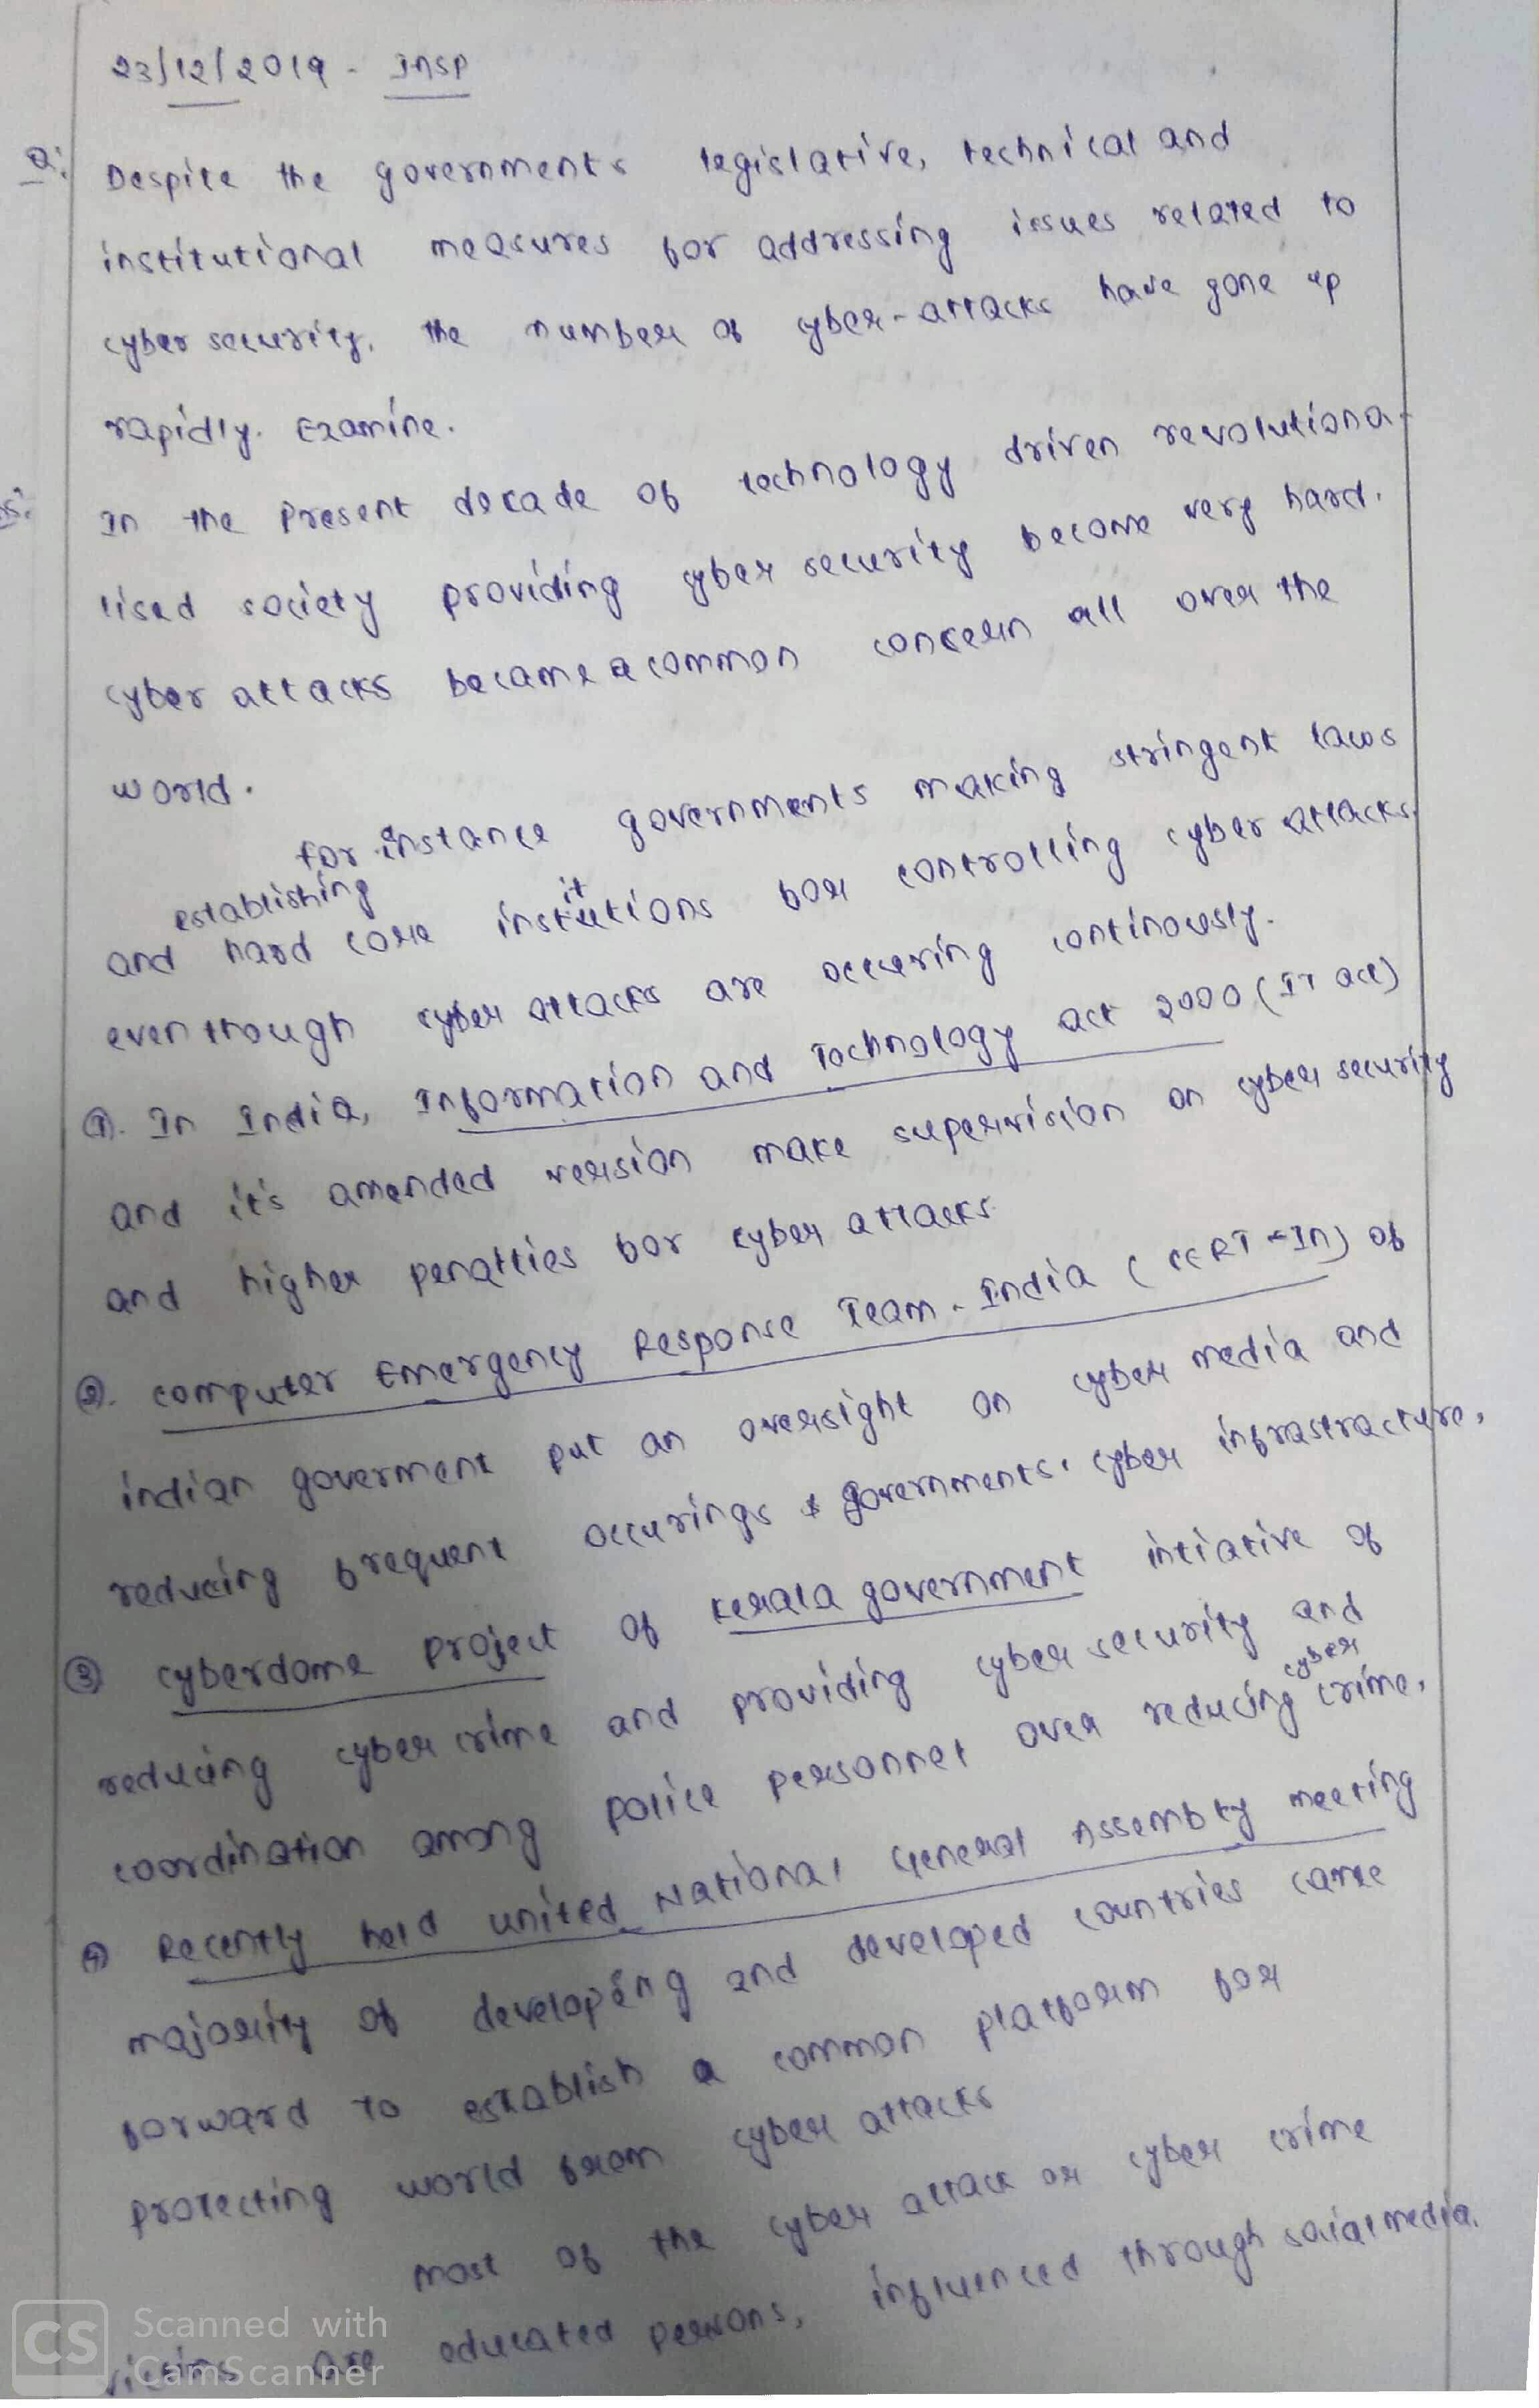 23/12/2019 - INSP
Q: Despite the governments legislative, technical and
institutional measures for addressing issues related to
cyber security, the number of cyber-attacks have gone up
rapidly. Examine.
In the present decade of technology driven revolutiona-
lised society providing cyber security become very hard.
cyber attacks became a common concern all over the
world.
for instance governments making stringent laws
establishing
and hard core institutions for controlling cyber attacks.
eventhough cyber attacks are occuring continously.
①. In India, Information and Technology act 2000 (IT act)
and it's amended version make supervision on cyber security
and higher penalties for cyber attacks.
②. Computer Emergency Response Team - India (CERT-In) of
indian goverment put an oversight on cyber media and
reducing frequent occurings & governments' cyber infrastracture.
③ cyberdome project of Kerala government intiative of
reducing cyber crime and providing cyber security and
cyber
coordination among police personnel over reducing crime.
④ Recently held united National General Assembly meeting
majority of developing and developed countries came
forward to establish a common platform for
protecting world from cyber attacks
most of the cyber attack or cyber crime
victims are educated persons, influenced through social media.
CS Scanned with
CamScanner